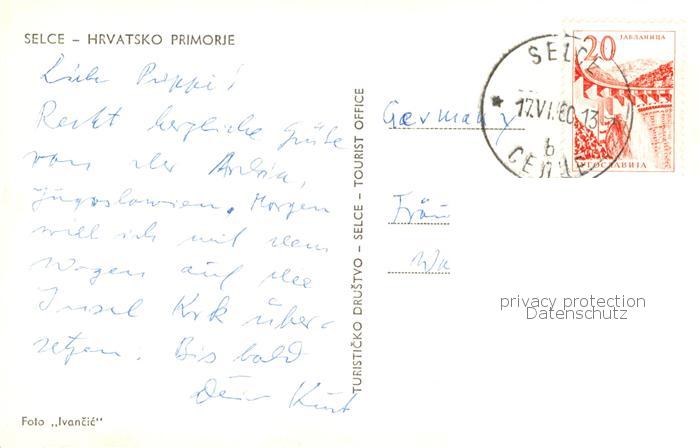 SELCE – HRVATSKO PRIMORJE
Liebe Puppi!
Recht herzliche Grüße
von der Adria,
Jugoslawien. Morgen
will ich mit dem
Wagen auf die
Insel Krk über-
setzen. Bis bald
Dein Kurt
Foto „Ivančić"
TURISTIČKO DRUŠTVO – SELCE – TOURIST OFFICE
Germany
Frau
20
ЈАБЛАНИЦА
ЈУГОСЛАВИЈА
SELCE
17.VI.60.13
b
СЕЛЦЕ
privacy protection
Datenschutz